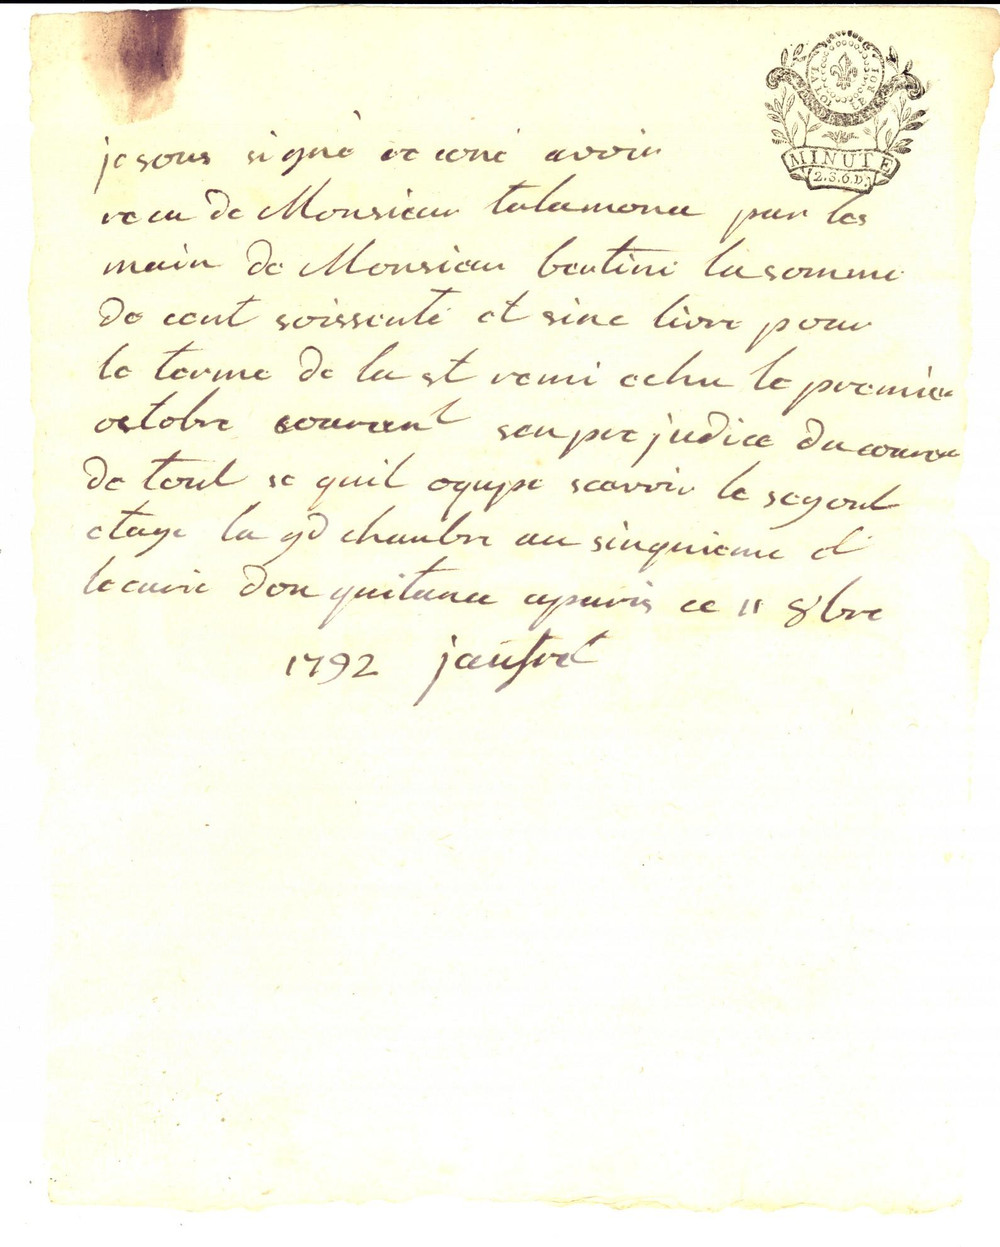 LA LOI LE ROI
MINUTE
2.S.6.D.
je sous signé reconé avoir
recu de Monsieur talamona par les
main de Monsieur bertini la somme
de cent soissente et sinc livre pour
le terme de la st remi echu le premier
octobre courent sen prejudice du couren
de tout se quil oqupe scavoir le segont
etage la gd chanbre au sinquieme et
lecurie don quitance a paris ce 11 8bre
1792 jaufret